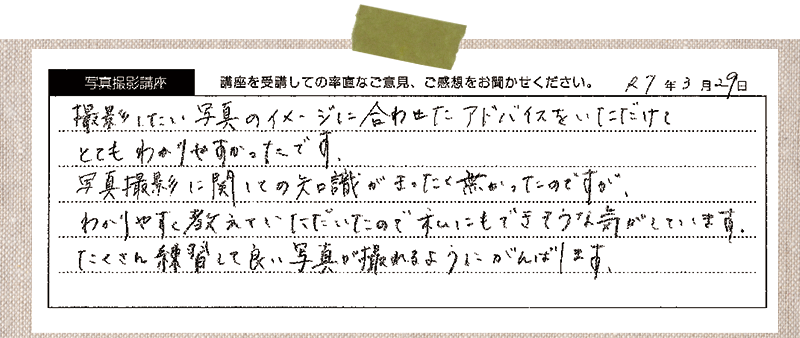 写真撮影講座 講座を受講しての率直なご意見、ご感想をお聞かせください。 R7年3月29日
撮影したい写真のイメージに合わせたアドバイスをいただけて
とてもわかりやすかったです。
写真撮影に関しての知識がまったく無かったのですが、
わかりやすく教えていただいたので私にもできそうな気がしています。
たくさん練習して良い写真が撮れるようにがんばります。